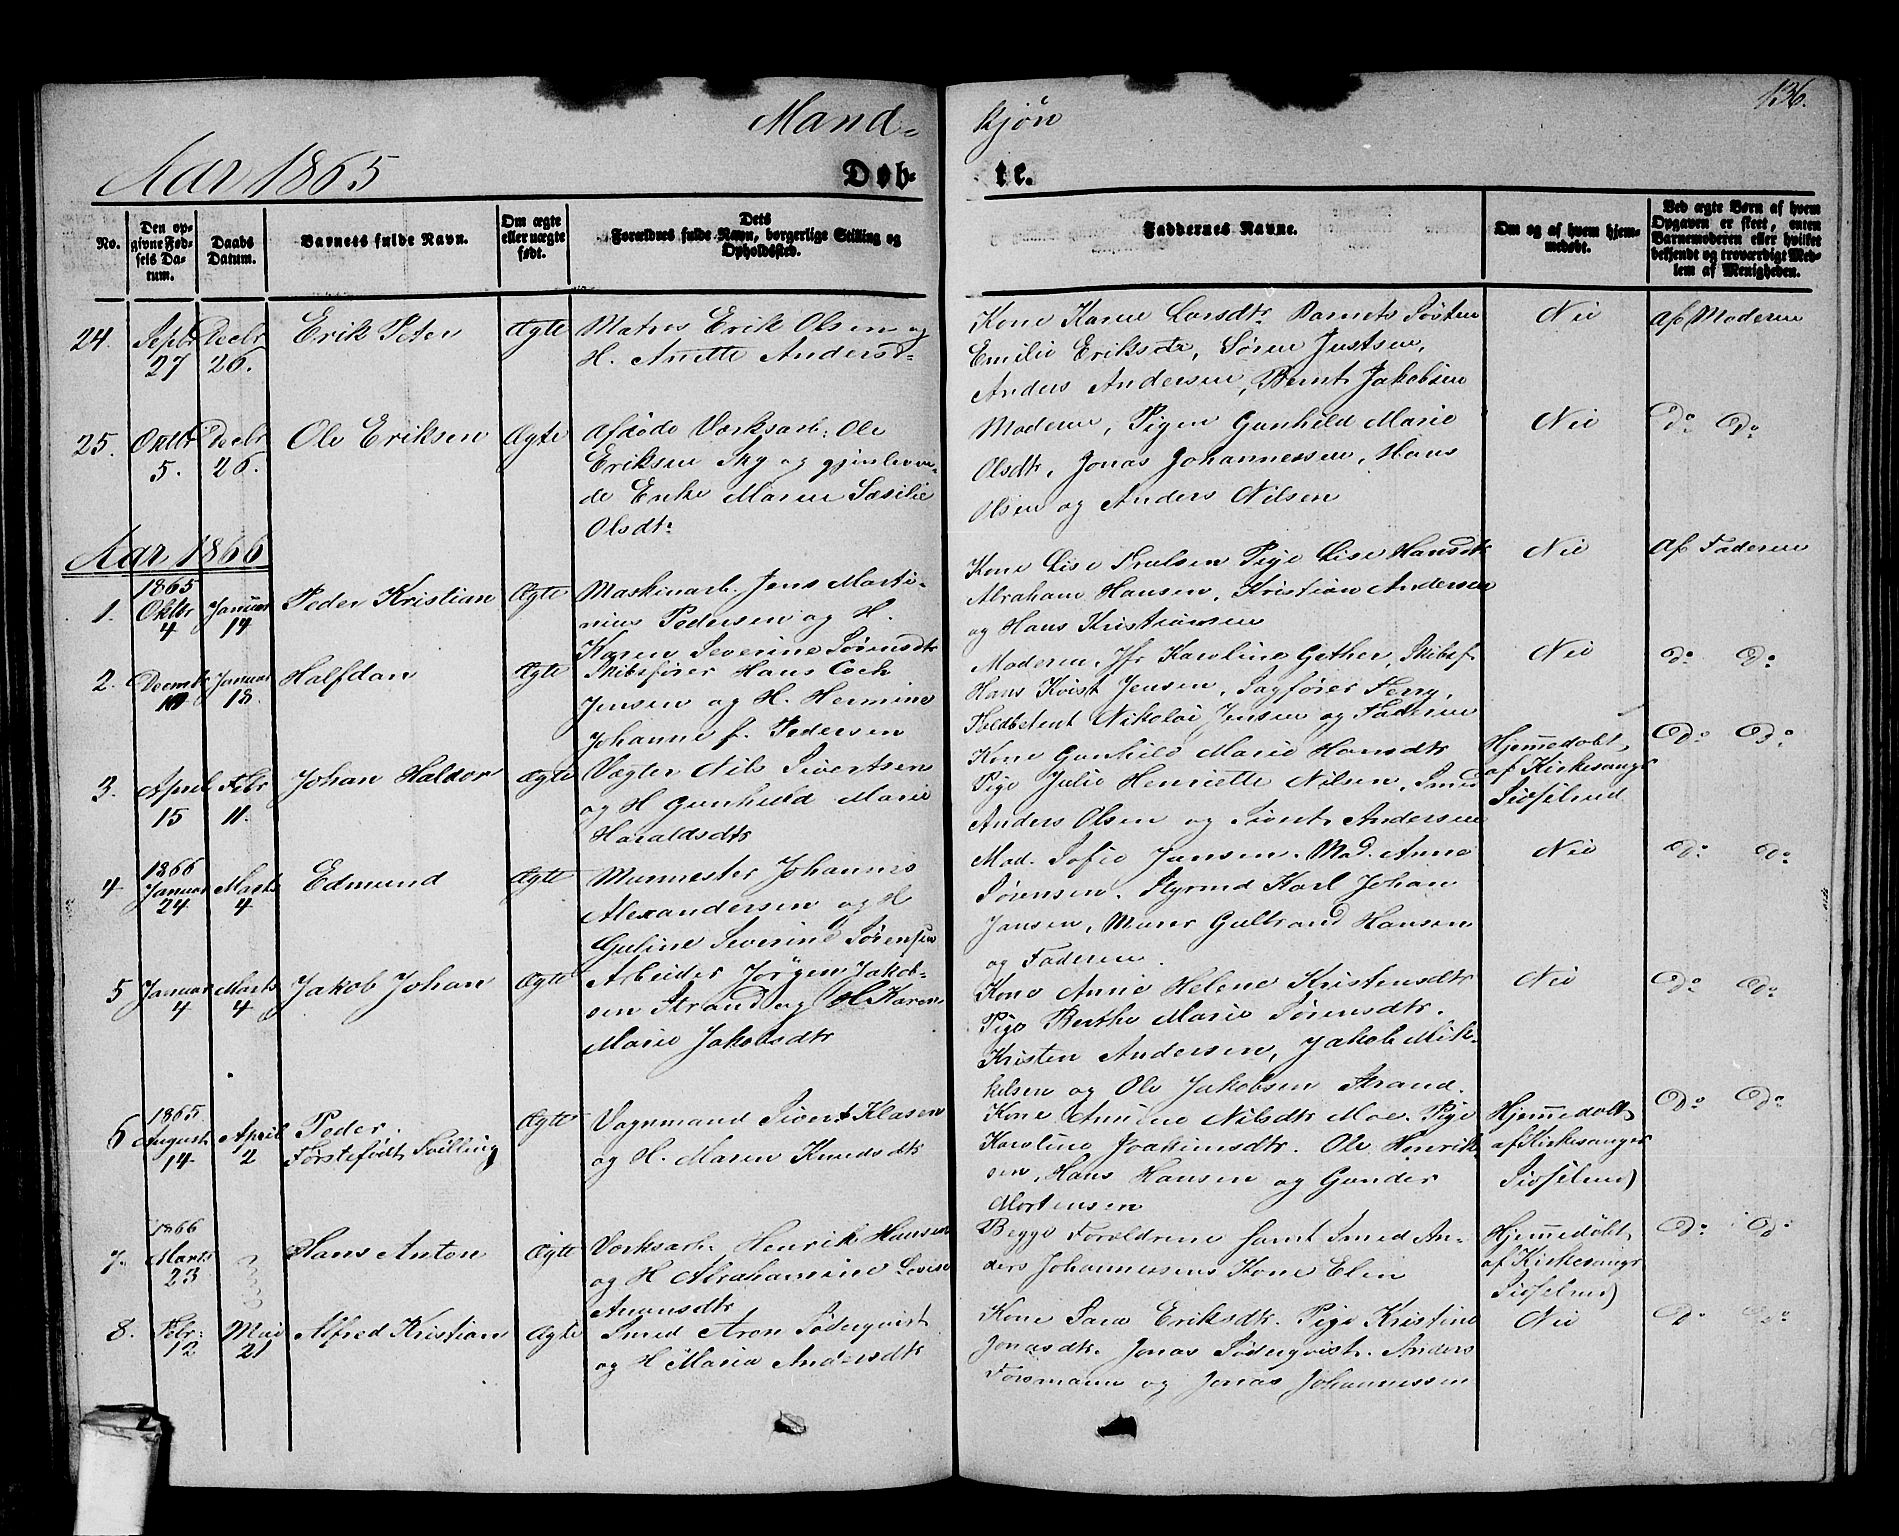 136.
Mand- kjøn
Aar 1865
Døb- te.
No.
Den opgivne Fødsels Datum.
Daabs Datum.
Barnets fulde Navn.
Om ægte eller uægte født.
Dets Forældres fulde Navn, borgerlige Stilling og Opholdssted.
Faddernes Navne.
Om og af hvem hjemmedøbt.
Ved ægte Børn af hvem Opgaven er skeet, enten Barnemoderen eller hvilket bekjendt og troværdigt Medlem af Menigheden.
24. Septbr 27 Decbr 26. Erik Peter Ægte
Matros Erik Olsen og
H. Anette Andersd-
Kone Karen Larsdtr. Barnets Søster
Emilie Eriksdtr, Søren Justsen,
Anders Andersen, Bernt Jakobsen
Nei
Af Moderen
25. Oktbr 5. Decbr 26. Ole Eriksen Ægte
Afdøde Værksarb: Ole
Eriksen Sky og gjenleven-
de Enke Maren Sesilie
Olsdtr
Moderen, Pigen Gunhild Marie
Olsdtr, Jonas Johannessen, Hans
Olsen og Anders Nilsen
Nei
Do Do
Aar 1866
1. 1865 Oktbr 4 Januar 14 Peder Kristian Ægte
Maskinarb. Jens Marti-
nius Pedersen og H.
Karen Severine Sørensdtr
Kone Lise Trulsen Pige Lise Hansdtr
Abraham Hansen, Kristian Andersen
og Hans Kristiansen
Nei
Af Faderen
2. Decmbr Januar 18. Halfdan Ægte
Skibsfører Hans Coch
Jensen og H. Hermine
Johanne f. Pedersen
Moderen, Jfr Karoline Gether, Skibsf.
Hans Kvist Jensen, Sagfører Ferry,
Toldbetent Nikolai Jensen og Faderen
Nei
Do Do
3. April 15 Febr 11. Johan Haldor Ægte
Vægter Nils Sivertsen
og H Gunhild Marie
Haraldsdtr
Kone Gunhild Marie Hansdtr
Pige Julie Henriette Nilsen, Smed
Anders Olsen og Sivert Andersen
Hjemmedøbt
af Kirkesanger
Sidselrud
Do Do
4 1866 Januar 24 Marts 4 Edmund Ægte
Murmester Johannes
Alexandersen og H
Guline Severine Sørensen
Mad. Sofie Jansen. Mad. Anne
Sørensen. Styrmd Karl Johan
Jansen, Murer Gulbrand Hansen
og Faderen.
Nei
Do Do
5 Januar 4 Marts 4 Jakob Johan Ægte
Arbeider Jørgen Jakob-
sen Strand og H Karen
Marie Jakobsdtr
Kone Anne Helene Kristensdtr
Pige Berthe Marie Sørensdtr.
Kristen Andersen, Jakob Mik-
kelsen og Ole Jakobsen Strand.
Nei
Do Do
6 1865 August 14 April 2 Peder.
Førstefødt Tvilling
Ægte
Vognmand Sivert Klasen
og H. Maren Knudsdtr
Kone Anne Nilsdtr Moe. Pige
Karoline Joakimsdtr. Ole Henrik-
sen, Hans Hansen og Gunder
Mortensen
Hjemmedøbt
af Kirkesanger
Sidselrud
Do Do
7. 1866 Marts 23 Hans Anton Ægte
Værksarb. Henrik Hansen
og H Abrahamine Lovise
Amonsdtr
Begge Forældrene samt Smed An-
ders Johannesens Kone Elen
Hjemmedøbt
af Kirkesanger
Sidselrud
Do Do
8. Febr: 12 Mai 21 Alfred Kristian Ægte
Smed Aron Söderqvist
og H Maria Andersdtr
Kone Sara Eriksdtr. Pige Kristine
Jonasdtr. Jonas Söderqvist. Anders
Forsmann og Jonas Johannessen
Nei
Do Do